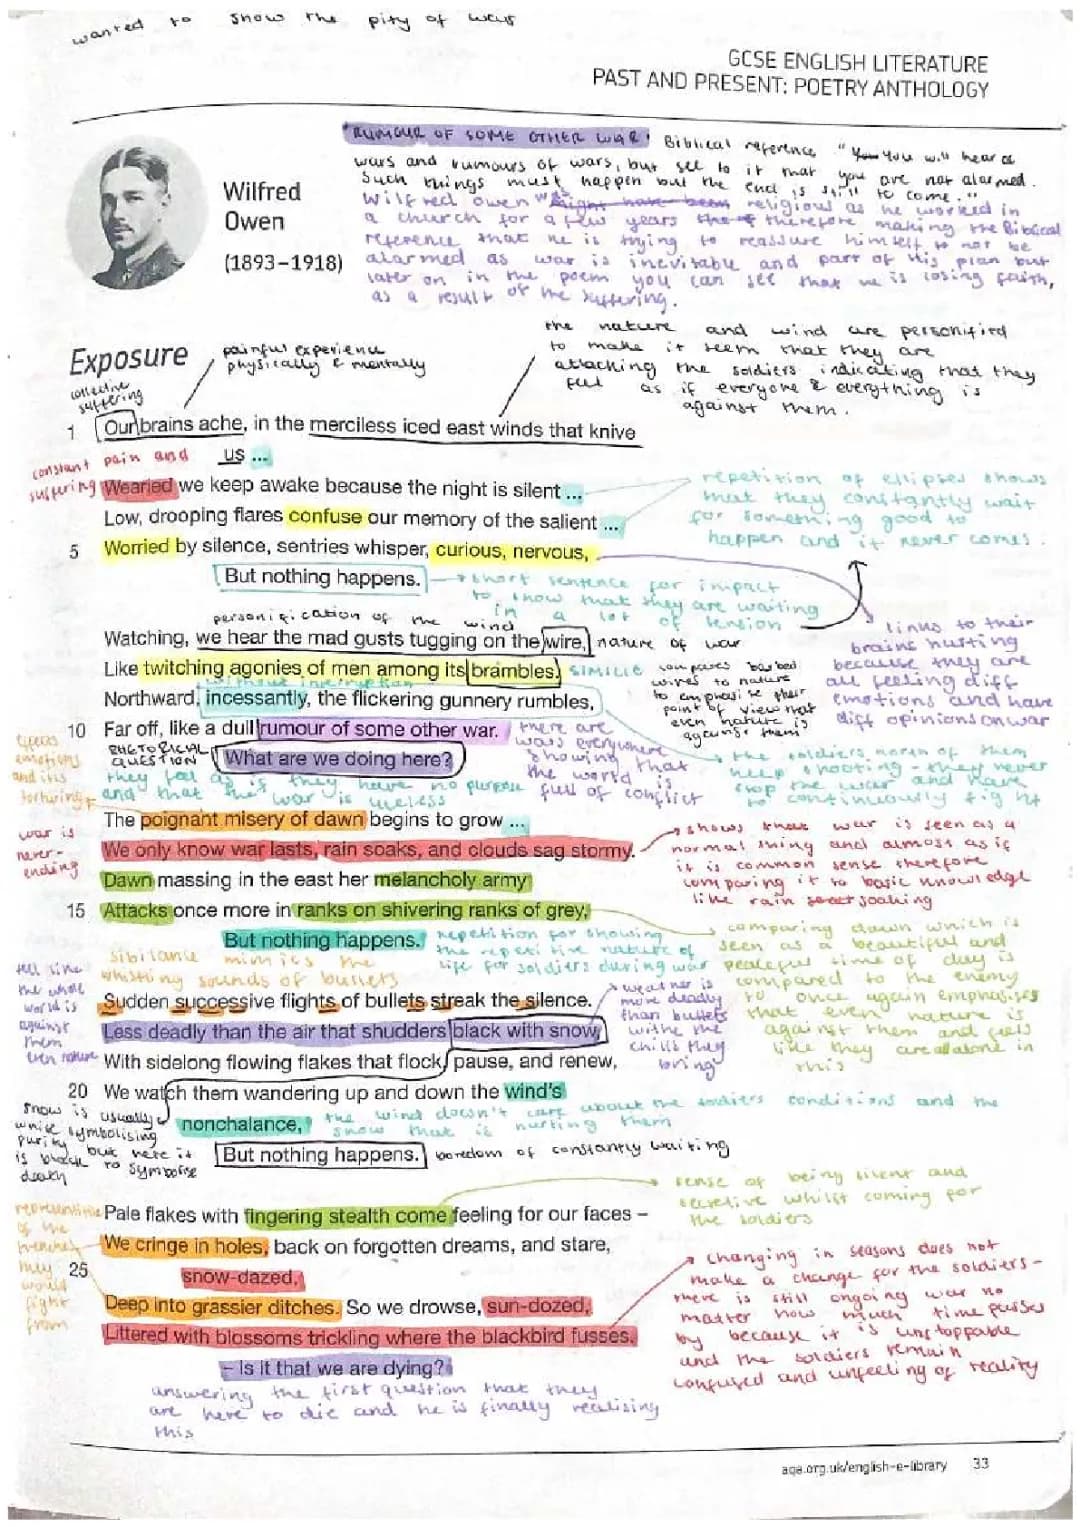 wanted to show the pity of wars
GCSE ENGLISH LITERATURE
PAST AND PRESENT: POETRY ANTHOLOGY
"RUMOUR OF SOME OTHER WAR" Biblical reference "You You will hear of
wars and rumours of wars, but see to it that you are not alarmed.
Such things must happen but the end is still to come."
Wilfred Owen "might have been religious as he worked in
a church for a few years the therefore making the Biblical
reference that he is trying to reassure himself to not be
alarmed as war is inevitable and part of His plan but
later on in the poem you can see that he is losing faith,
as a result of the suffering.
Wilfred
Owen
(1893–1918)
the nature and wind are personified
to make it seem that they are
attacking the soldiers indicating that they
feel as if everyone & everything is
against them.
Exposure
painful experience
physically & mentally
collective
suffering
1 Our brains ache, in the merciless iced east winds that knive
us ...
constant pain and
suffering
Wearied we keep awake because the night is silent ...
Low, drooping flares confuse our memory of the salient ...
5 Worried by silence, sentries whisper, curious, nervous,
But nothing happens.
repetition of ellipses shows
that they constantly wait
for something good to
happen and it never comes.
short sentence for impact
to show that they are waiting
in a lot of tension
links to their
brains hurting
because they are
all feeling diff
emotions and have
diff opinions on war
personification of the wind
Watching, we hear the mad gusts tugging on the wire,
nature of war
Like twitching agonies of men among its brambles.
SIMILIE
compares barbed
wires to nature
to emphasise their
point of view that
even nature is
against them
without interruption
Northward, incessantly, the flickering gunnery rumbles,
10 Far off, like a dull rumour of some other war.
there are
wars everywhere
showing that
the world is
full of conflict
RHETORICAL
QUESTION
What are we doing here?
they feel as if they have no purpose
and that the war is useless
the soldiers north of them
keep shooting - they never
stop the war and have
to continuously fight
emotions
and it is
torturing
The poignant misery of dawn begins to grow ...
We only know war lasts, rain soaks, and clouds sag stormy.
war is
never-
ending
shows that war is seen as a
normal thing and almost as if
it is common sense therefore
comparing it to basic knowledge
like rain soaking
Dawn massing in the east her melancholy army
15 Attacks once more in ranks on shivering ranks of grey,
But nothing happens.
repetition for showing
the repetitive nature of
life for soldiers during war
comparing dawn which is
seen as a beautiful and
peaceful time of day is
compared to the enemy
to once again emphasises
that even nature is
against them and feels
like they are all alone in
this
sibilance mimics the
whistling sounds of bullets
Sudden successive flights of bullets streak the silence.
Less deadly than the air that shudders black with snow,
feel like
the whole
world is
against
them
even nature
weather is
more deadly
than bullets
with the
chills they
bring
With sidelong flowing flakes that flock, pause, and renew,
20 We watch them wandering up and down the wind's
nonchalance,
the wind doesn't care about the soldiers conditions and the
snow that is hurting them
snow is usually
white symbolising
purity but here it
is black to symbolise
death
But nothing happens.
boredom of constantly waiting
sense of being silent and
secretive whilst coming for
the soldiers
Pale flakes with fingering stealth come feeling for our faces –
We cringe in holes, back on forgotten dreams, and stare,
snow-dazed,
25
Deep into grassier ditches. So we drowse, sun-dozed,
Littered with blossoms trickling where the blackbird fusses.
– Is it that we are dying?
representitive
of the
trenches
they
would
fight
from
changing in seasons does not
make a change for the soldiers -
there is still ongoing war no
matter how much time passes
by because it is unstoppable
and the soldiers remain
confused and unfeeling of reality
answering the first question that they
are here to die and he is finally realising
this
aqa.org.uk/english-e-library 33